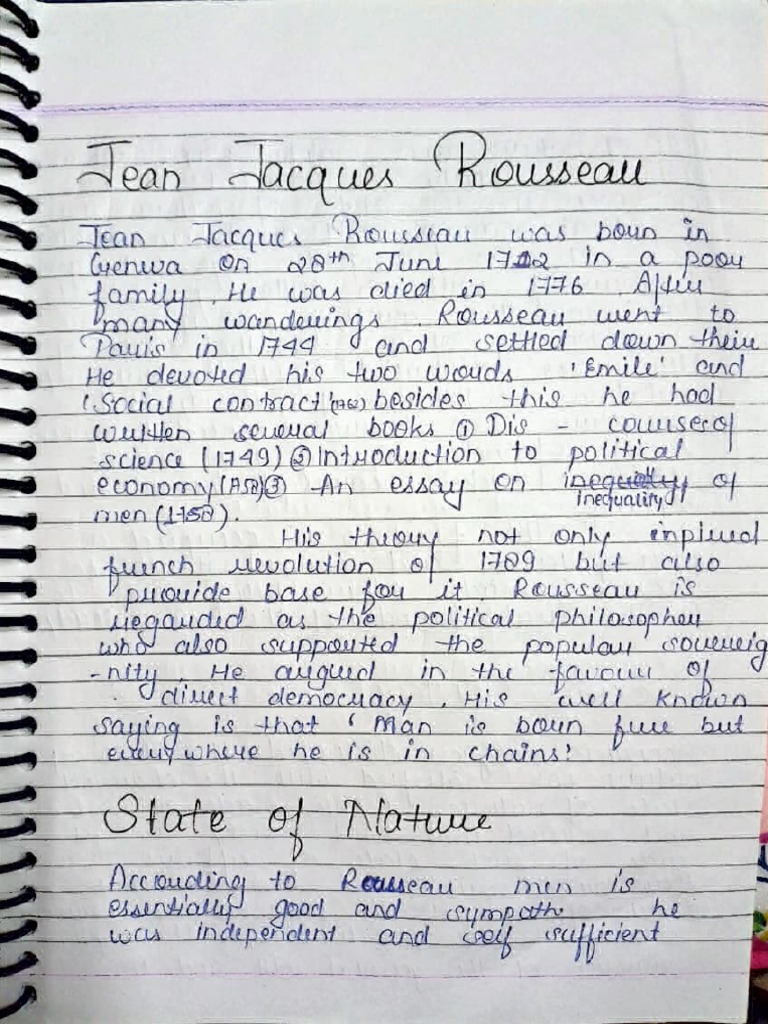 Jean Jacques Rousseau
Jean Jacques Rousseau was born in
Genwa on 28th June 1712 in a poor
family. He was died in 1776 After
many wanderings. Rousseau went to
Paris in 1744 and settled down their
He devoted his two words 'Emile' and
'Social contract besides this he had
written several books ① Dis - course of
science (1749) ② Introduction to political
economy ③ An essay on inequality of
men
His theory not only inpired
french revolution of 1789 but also
provide base for it Rousseau is
regarded as the political philosopher
who also supported the popular sovereig
-nity. He argued in the favour of
direct democracy. His well known
saying is that 'Man is born free but
every where he is in chains'
State of Nature
According to Rousseau men is
essentially good and sympath he
was independent and self sufficient